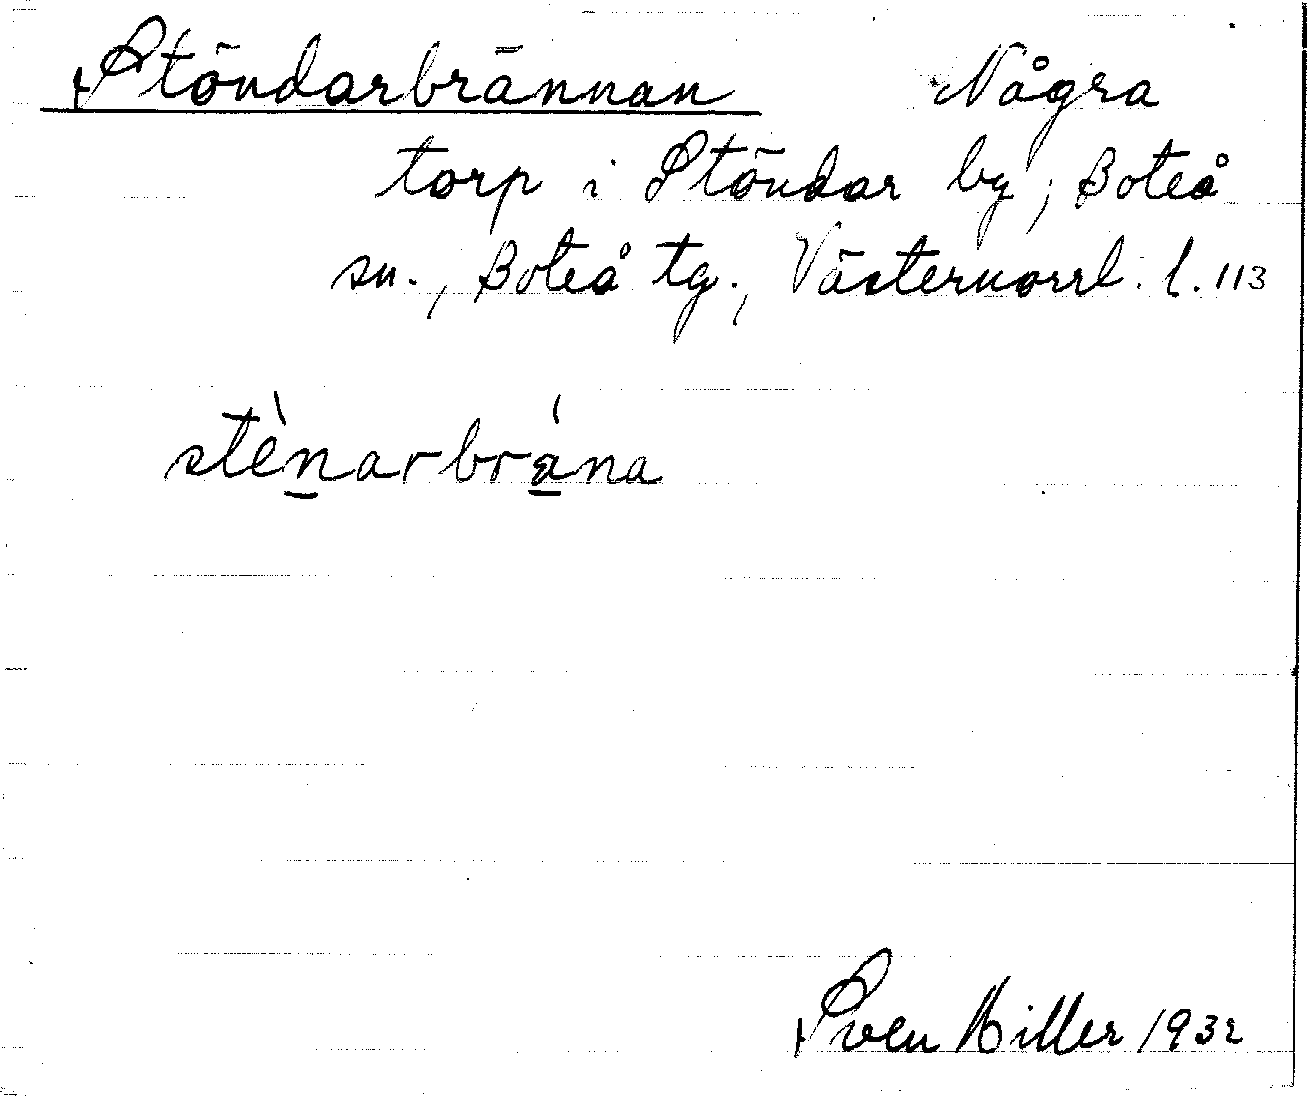 Stöndarbrännan Några
torp i Stöndar by, Boteå
sn., Boteå tg., Västernorrl. l. 113
stènarbrána
Sven Hiller 1932